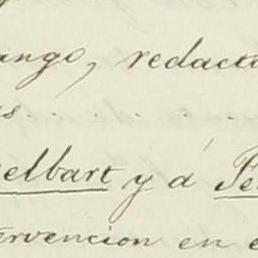 ango, redacto
s . . . . .
elbart y á Se
ervencion en e